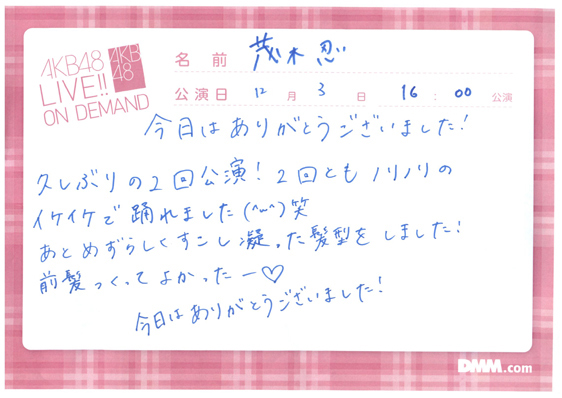 AKB48
LIVE!!
ON DEMAND
AKB
48
名前 茂木忍
公演日 12月3日 16:00公演
今日はありがとうございました!
久しぶりの2回公演!2回ともノリノリの
イケイケで踊れました(^ω^)笑
あとめずらしくすこし凝った髪型をしました!
前髪つくってよかったー♡
今日はありがとうございました!
DMM.com